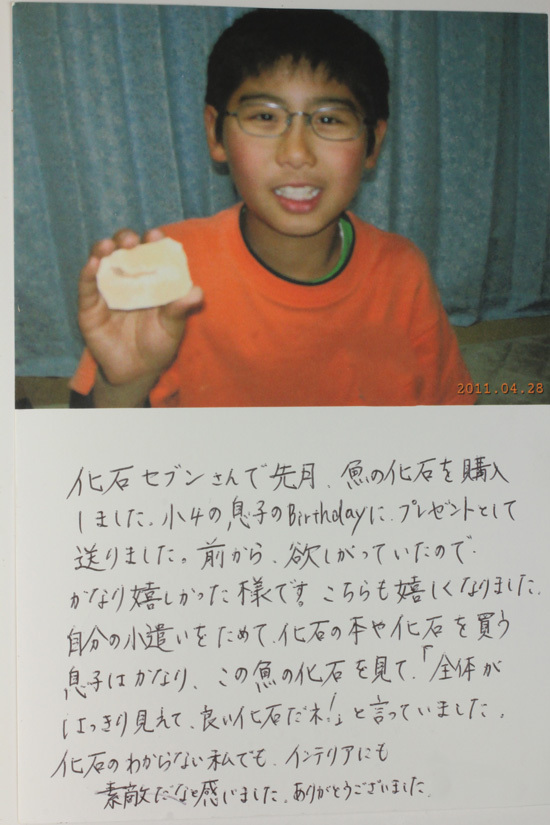 2011.04.28
化石セブンさんで先月、魚の化石を購入
しました。小4の息子のBirthdayに、プレゼントとして
送りました。前から、欲しがっていたので、
かなり嬉しかった様です。こちらも嬉しくなりました。
自分の小遣いをためて、化石の本や化石を買う
息子はかなり、この魚の化石を見て、「全体が
はっきり見えて、良い化石だネ!」と言っていました。
化石のわからない私でも、インテリアにも
素敵だなと感じました。ありがとうございました。